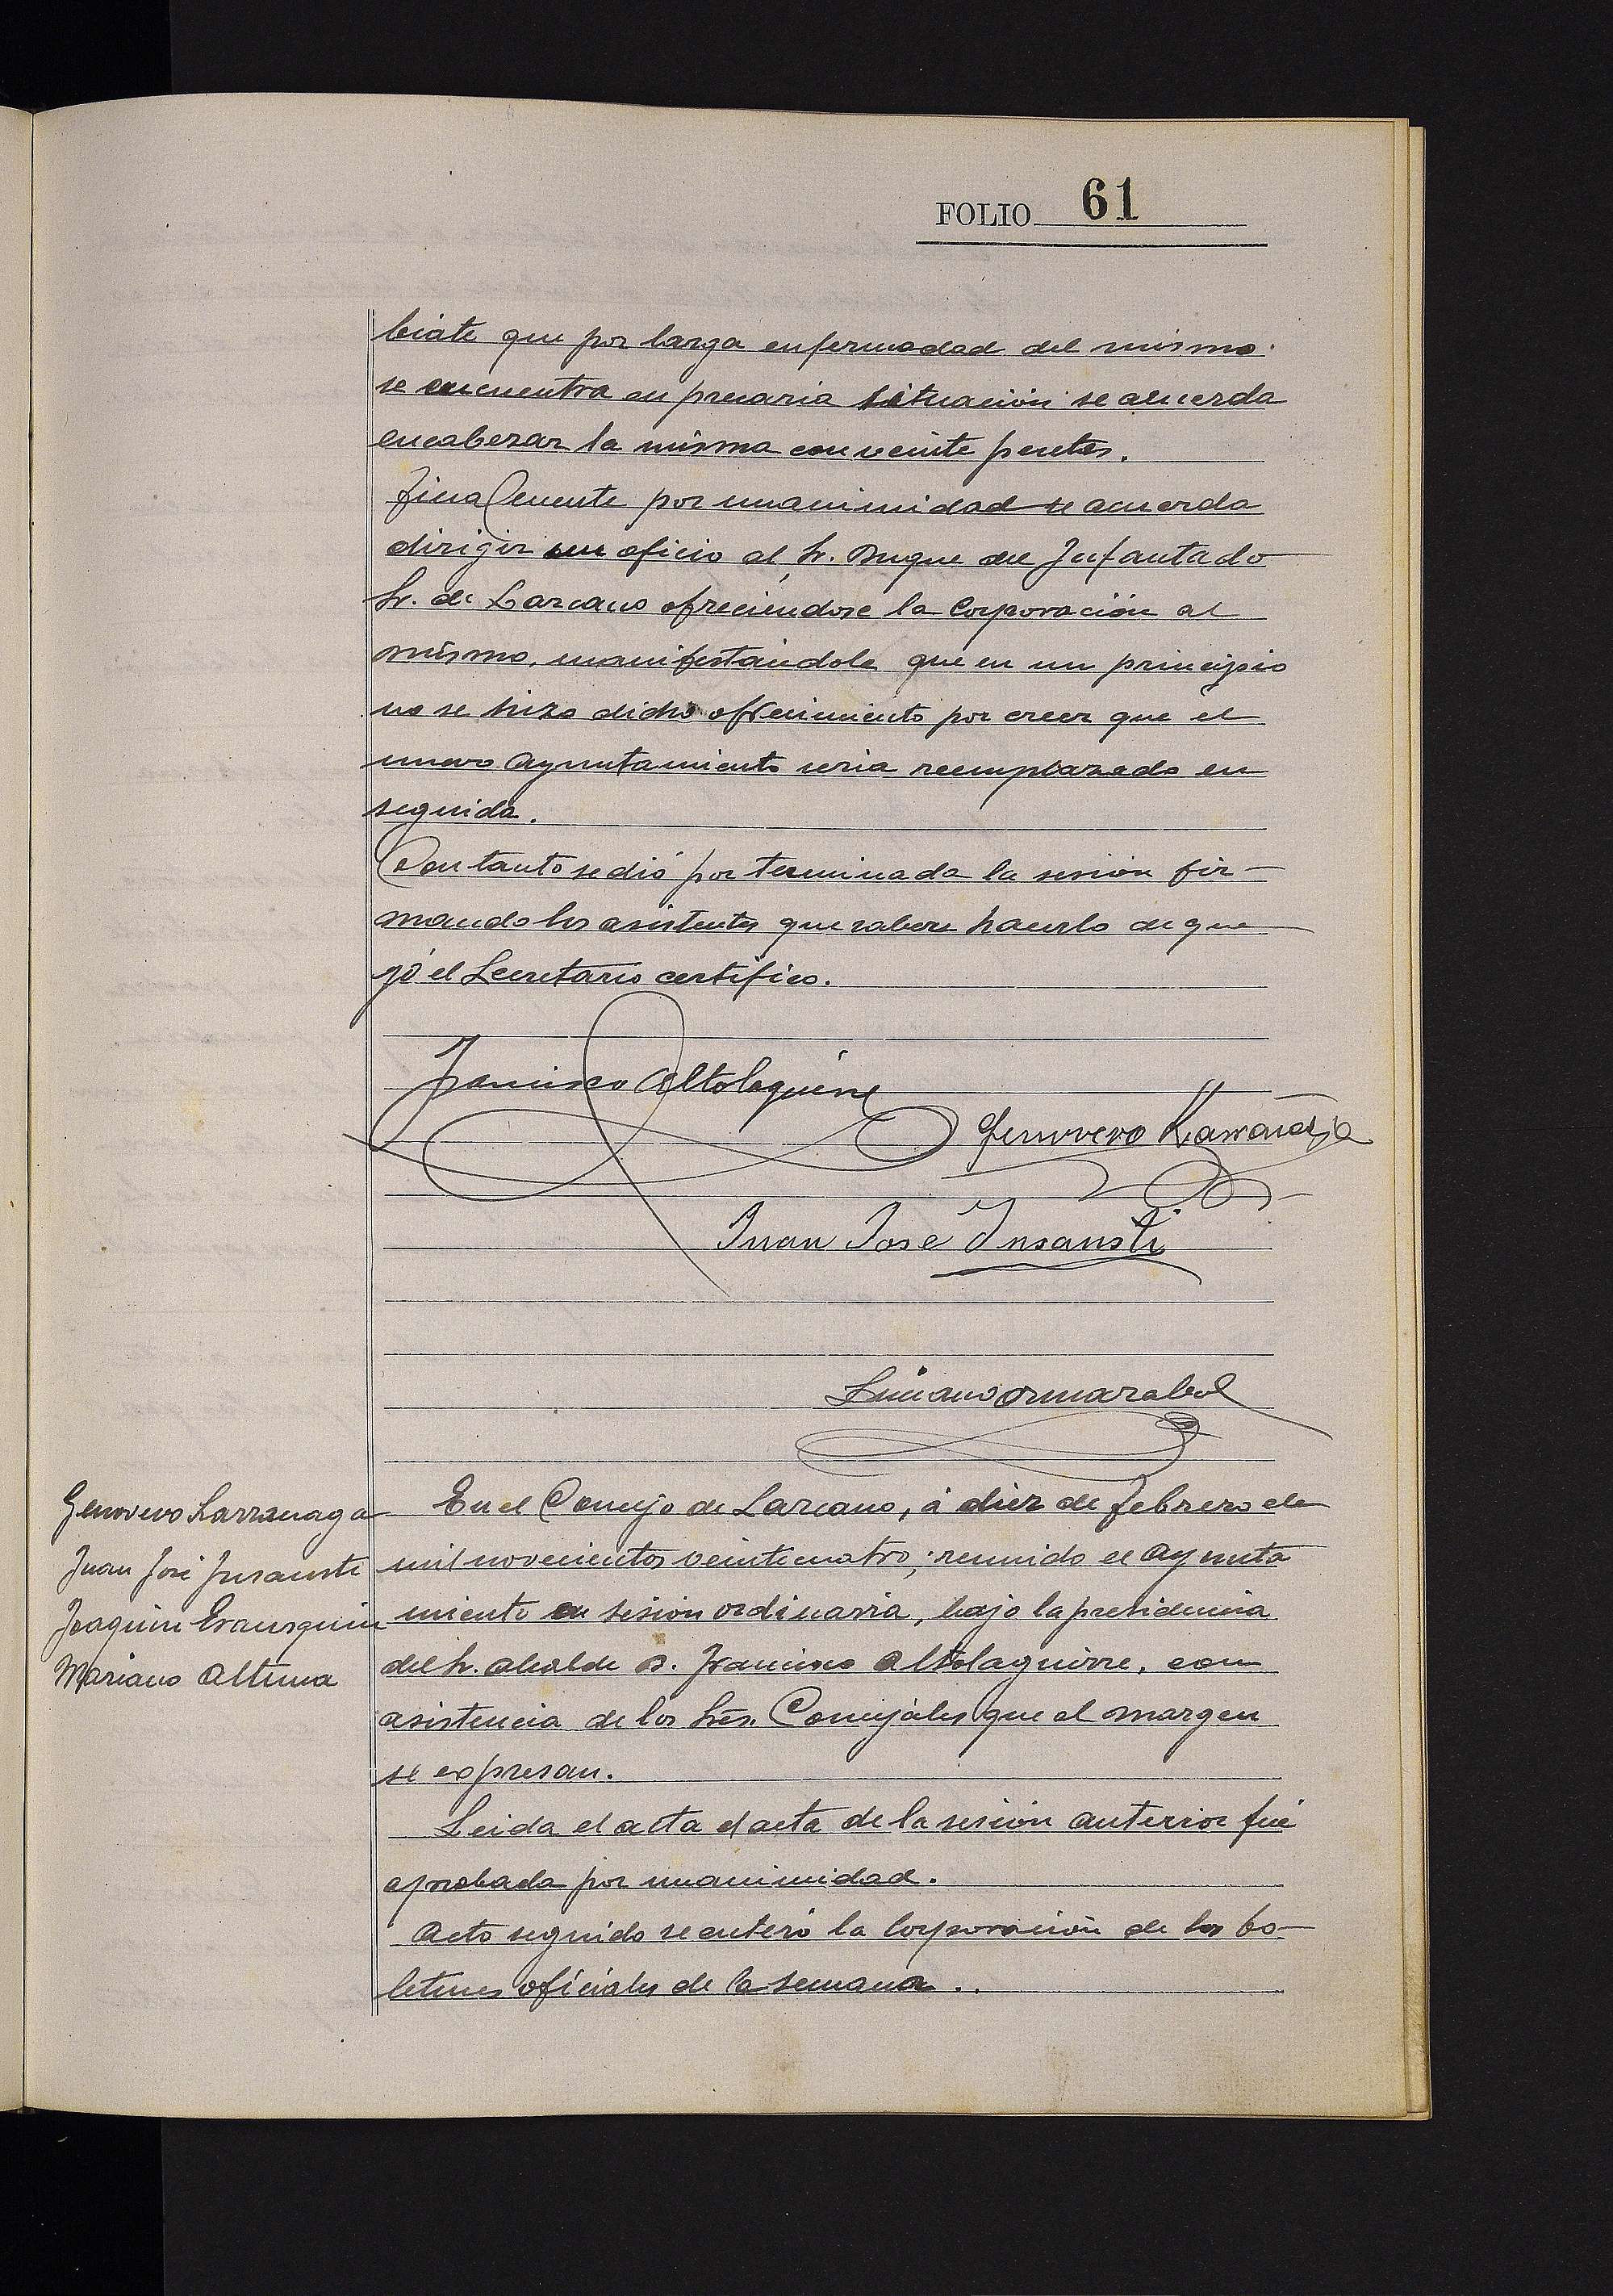 FOLIO 61
biate que por larga enfermedad del mismo
se encuentra en precaria situación se acuerda
encabezar la misma con veinte pesetas.
Finalmente por unanimidad se acuerda
dirigir un oficio al Sr. Duque del Infantado
Sr. de Lazcano ofreciéndose la Corporación al
mismo, manifestándole que en un principio
no se hizo dicho ofrecimiento por creer que el
nuevo Ayuntamiento seria reemplazado en
seguida.
Con tanto se dió por terminada la sesión fir-
mando los asistentes que saben hacerlo de que
yó el Secretario certifico.
Francisco Altolaguirre
Genovevo Larrañaga
Juan José Insausti
Luciano Ormazabal
Genovevo Larranaga
Juan José Insausti
Joaquin Erausquin
Mariano Altuna
En el Concejo de Lazcano, á diez de febrero de
mil novecientos veinticuatro; reunido el Ayunta
miento en sesión ordinaria, bajo la presidencia
del Sr. Alcalde D. Francisco Altolaguirre, con
asistencia de los Sres. Concejales que al margen
se expresan.
Leida el acta el acta de la sesión anterior fué
aprobada por unanimidad.
Acto seguido se enteró la Corporación de los bo-
letines oficiales de la semana..